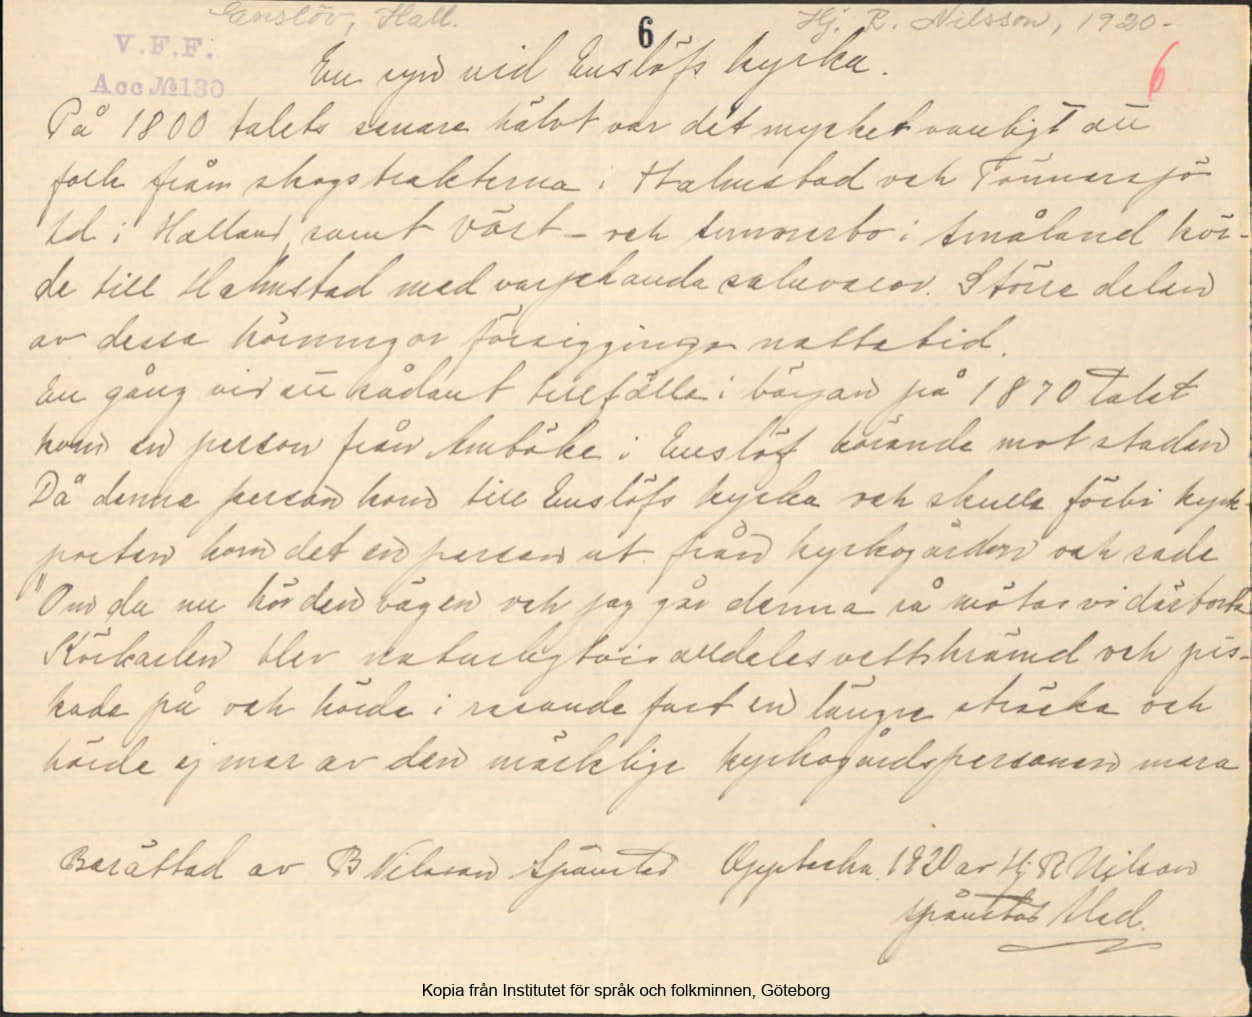 Enslöv, Hall.
6
Hj. R. Nilsson, 1920-
V.F.F.
Acc №130
6
En syn vid Enslöfs kyrka.
På 1800 talets senare hälvt var det mycket vanligt att
folk från skogstrakterna i Halmstad och Tönnersjö
hd i Halland, samt Väst- och Sunnerbo i Småland kör-
de till Halmstad med varjehanda saluvaror. Större delen
av dessa körningar försiggingo nattetid.
En gång vid ett sådant tillfälle i början på 1870 talet
kom en person från Amböke i Enslöf körande mot staden
Då denne person kom till Enslöfs kyrka och skulle förbi kyrk-
porten kom det en person ut från kyrkogården och sade
"Om du nu kör den vägen och jag går denna så mötas vi därborta
Körkarlen blev naturligtvis alldeles vettskrämd och pis-
kade på och körde i rasande fart en längre sträcka och
hörde ej mer av den märklige kyrkogårdspersonen mera
Berättad av B Nilsson Spånstad Upptecknad 1920 av Hj R Nilsson
Spånstad Hld.
Kopia från Institutet för språk och folkminnen, Göteborg